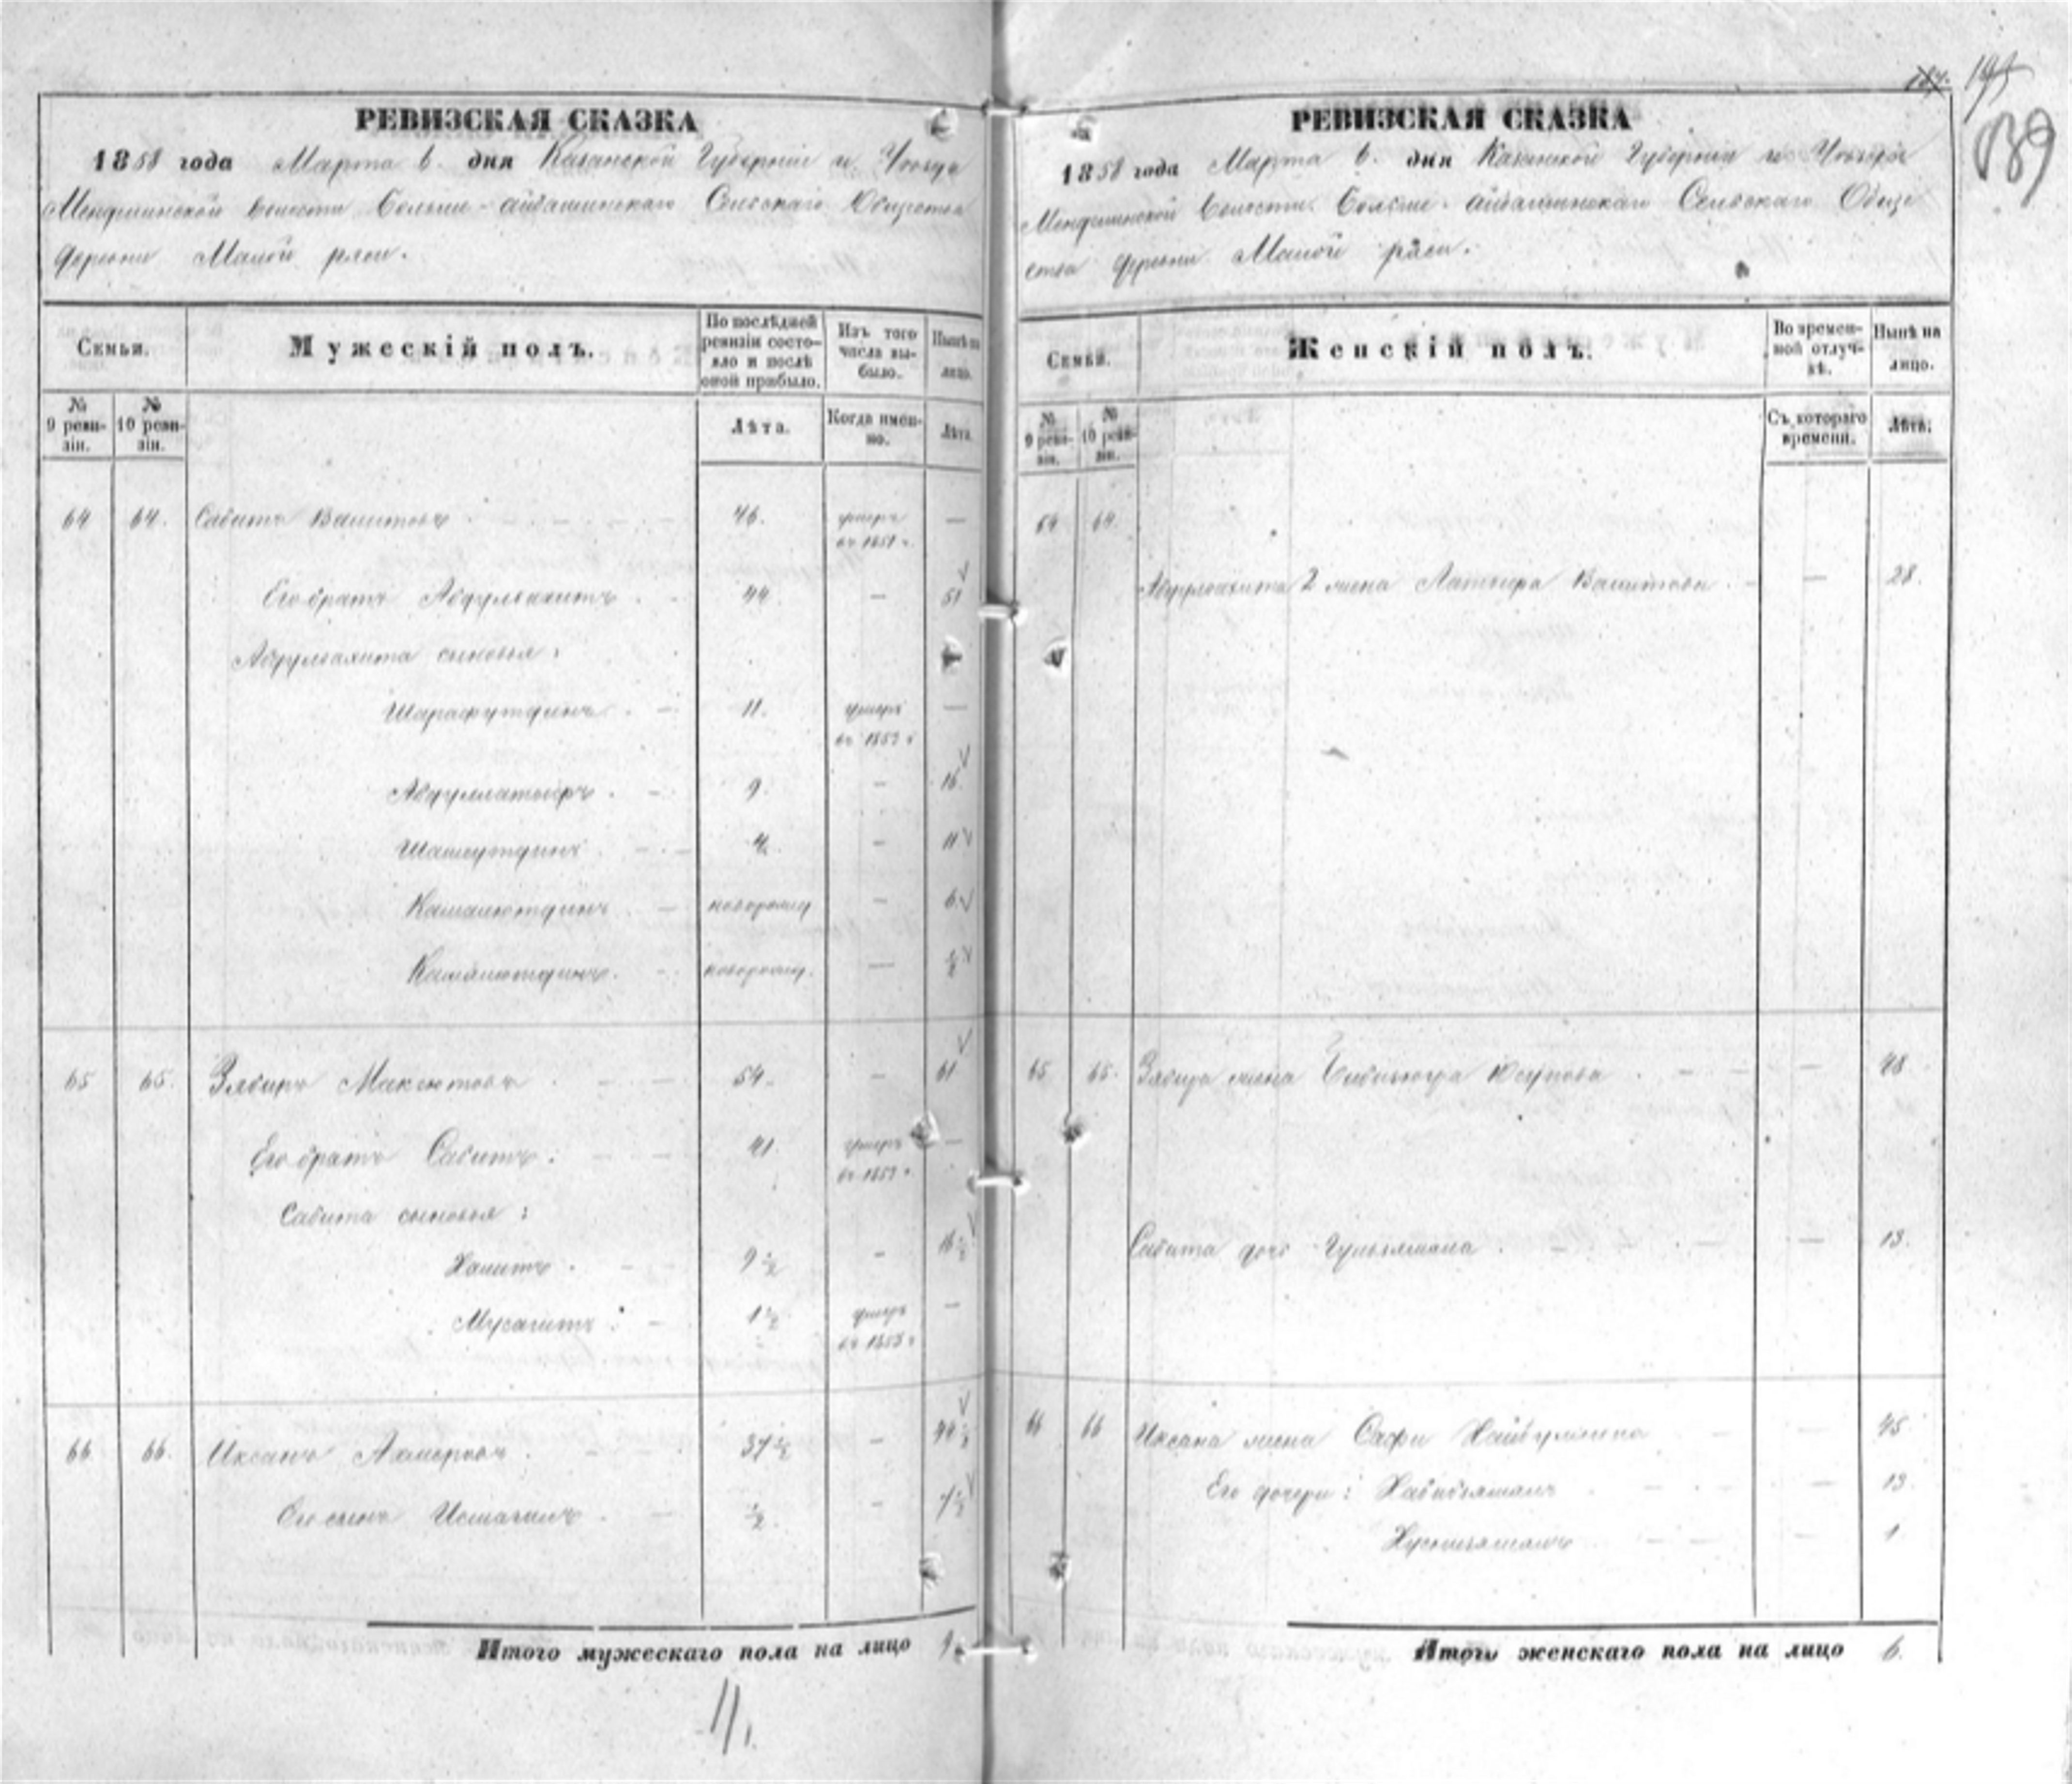 РЕВИЗСКАЯ СКАЗКА
1858 года Марта 6. дня Казанской Губерніи и Уѣзда
волости Больше-айбашинскаго Сельскаго Общества
деревни Малой ряси.
Семьи.
Мужескій полъ.
По послѣдней ревизіи состояло и послѣ оной прибыло.
Изъ того числа выбыло.
Нынѣ на лицо.
№ 9 ревизіи.
№ 10 ревизіи.
Лѣта.
Когда именно.
Лѣта.
64 64. Сабитъ Валитовъ 46. умеръ въ 1851 г. —
Его братъ Абдулвахитъ 44 — 51
Абдулвахита сыновья:
Шарафутдинъ 11. умеръ —
Абдуллатыфъ 9. — 16
4 — 11
Камалютдинъ новорожд — 6
новорожд. — ½
65 65. Зябиръ Максютовъ 54. — 61
Его братъ Сабитъ: 41. умеръ —
Сабита сыновья:
Халитъ 9½ — 16½
Мусагитъ 1½ умеръ —
66 66. Ихсанъ 37½ — 44½
Его сынъ Исмагилъ ½. — 7½
Итого мужескаго пола на лицо 9.
11.
184. 195
139
РЕВИЗСКАЯ СКАЗКА
1858 года Марта 6. дня Казанской Губерніи и Уѣзда
волости Больше-айбашинскаго Сельскаго Обще
ства деревни Малой ряси.
Семьи.
Женскій полъ.
Во временной отлучкѣ.
Нынѣ на лицо.
№ 9 ревизіи.
№ 10 ревизіи.
Съ котораго времени.
Лѣта.
64 64.
Абдулвахита 2 жена Латыфа — 28.
65 65. жена Юсупова — 48
Сабита дочь — 13.
66 66 Ихсана жена Сафи Хайбуллина — 45
Его дочери: Хабибзямалъ — 13.
Хуснизямалъ — 1
Итого женскаго пола на лицо 6.